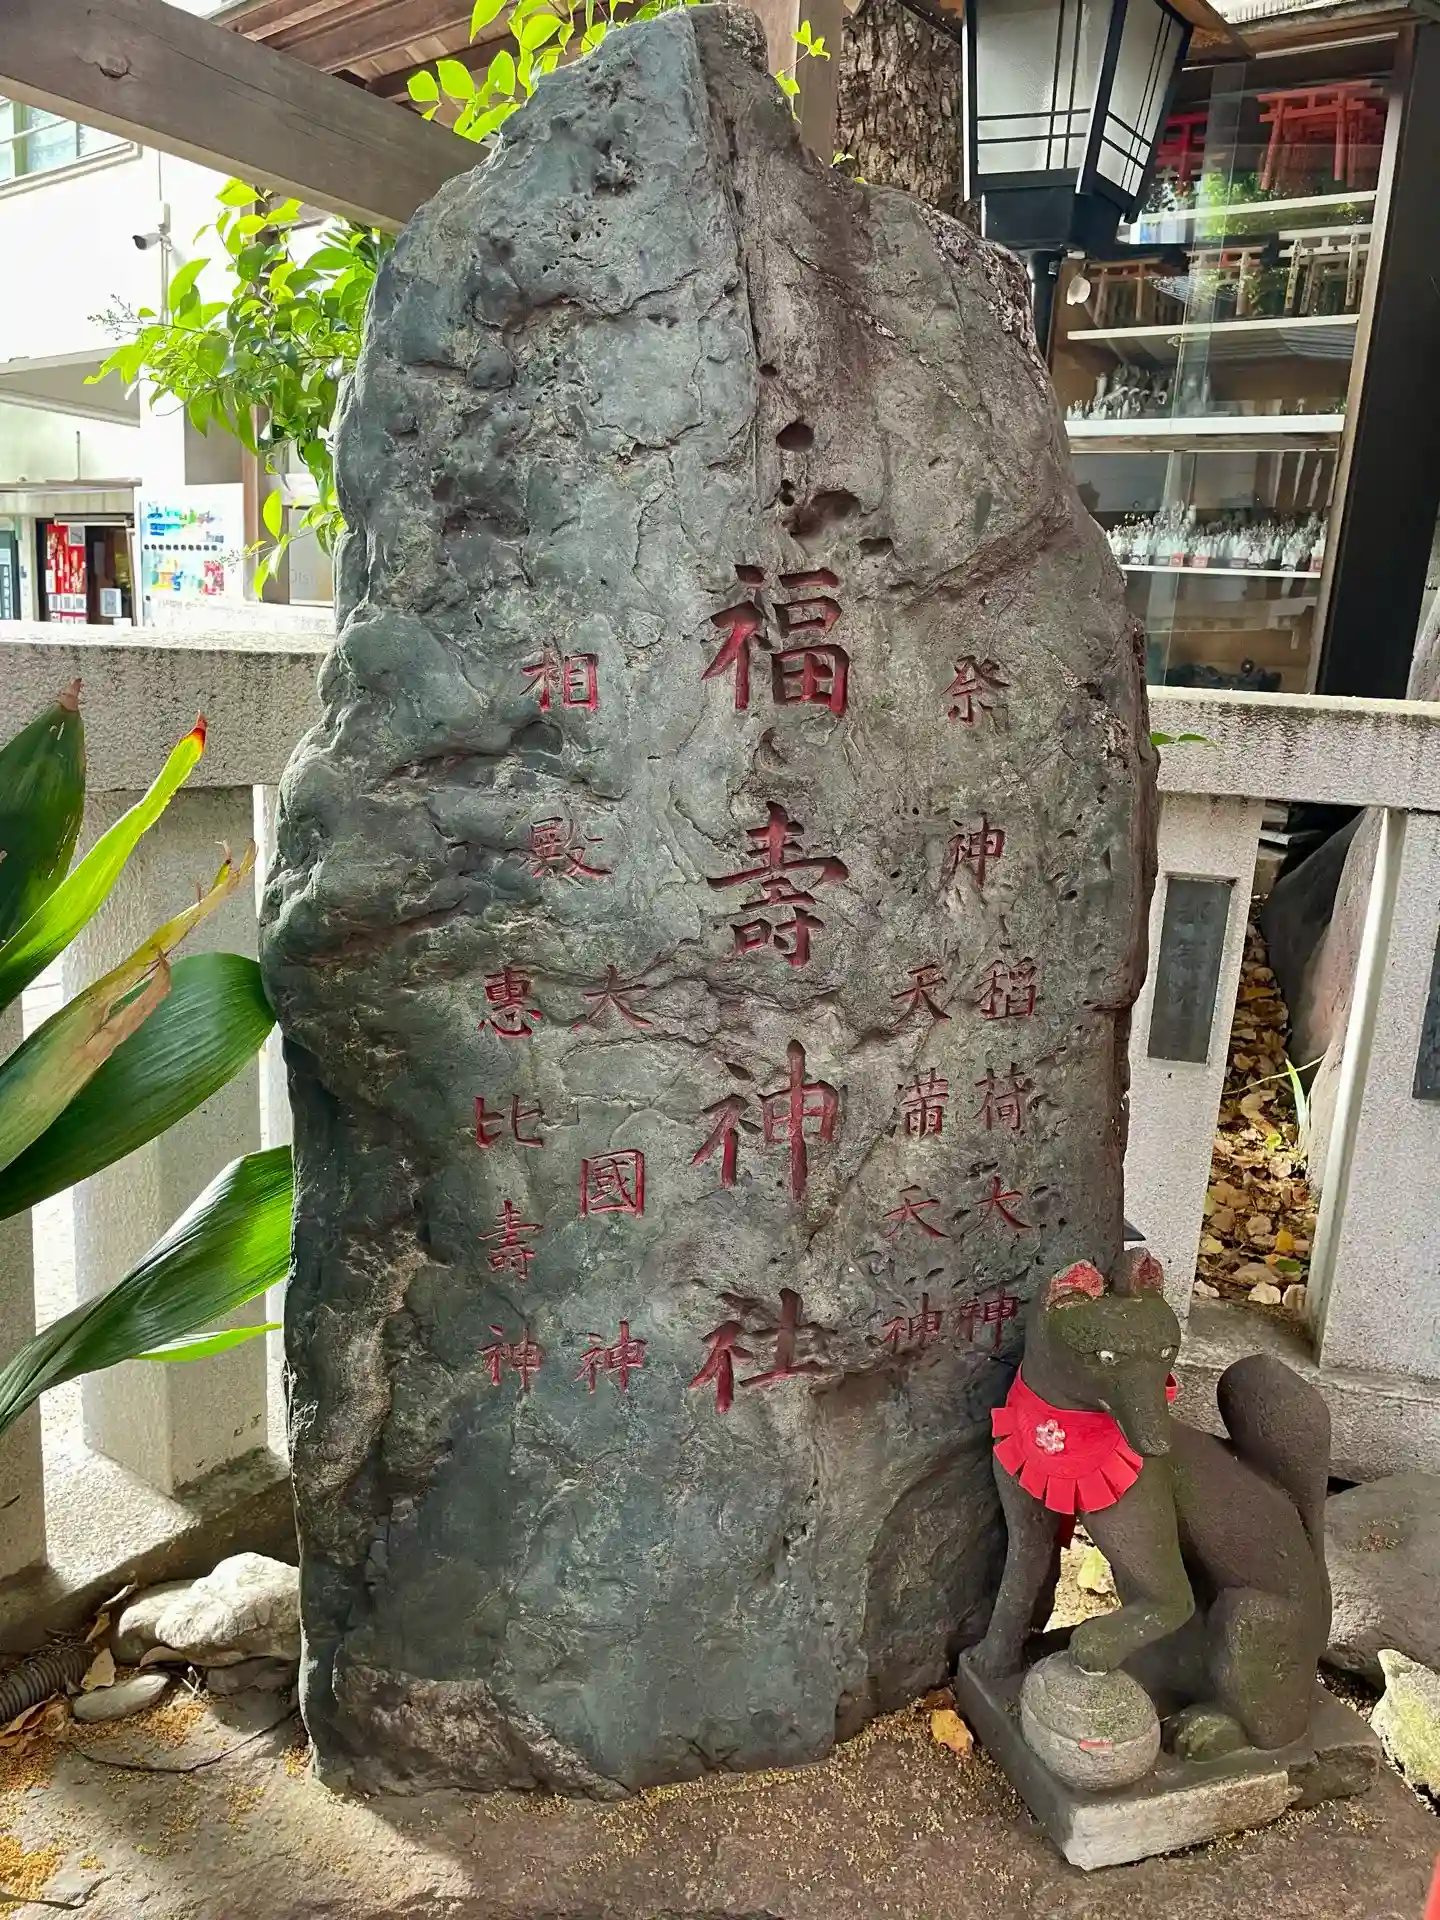 祭神
稲荷大神
天満天神
福壽神社
相殿
大國神
惠比壽神